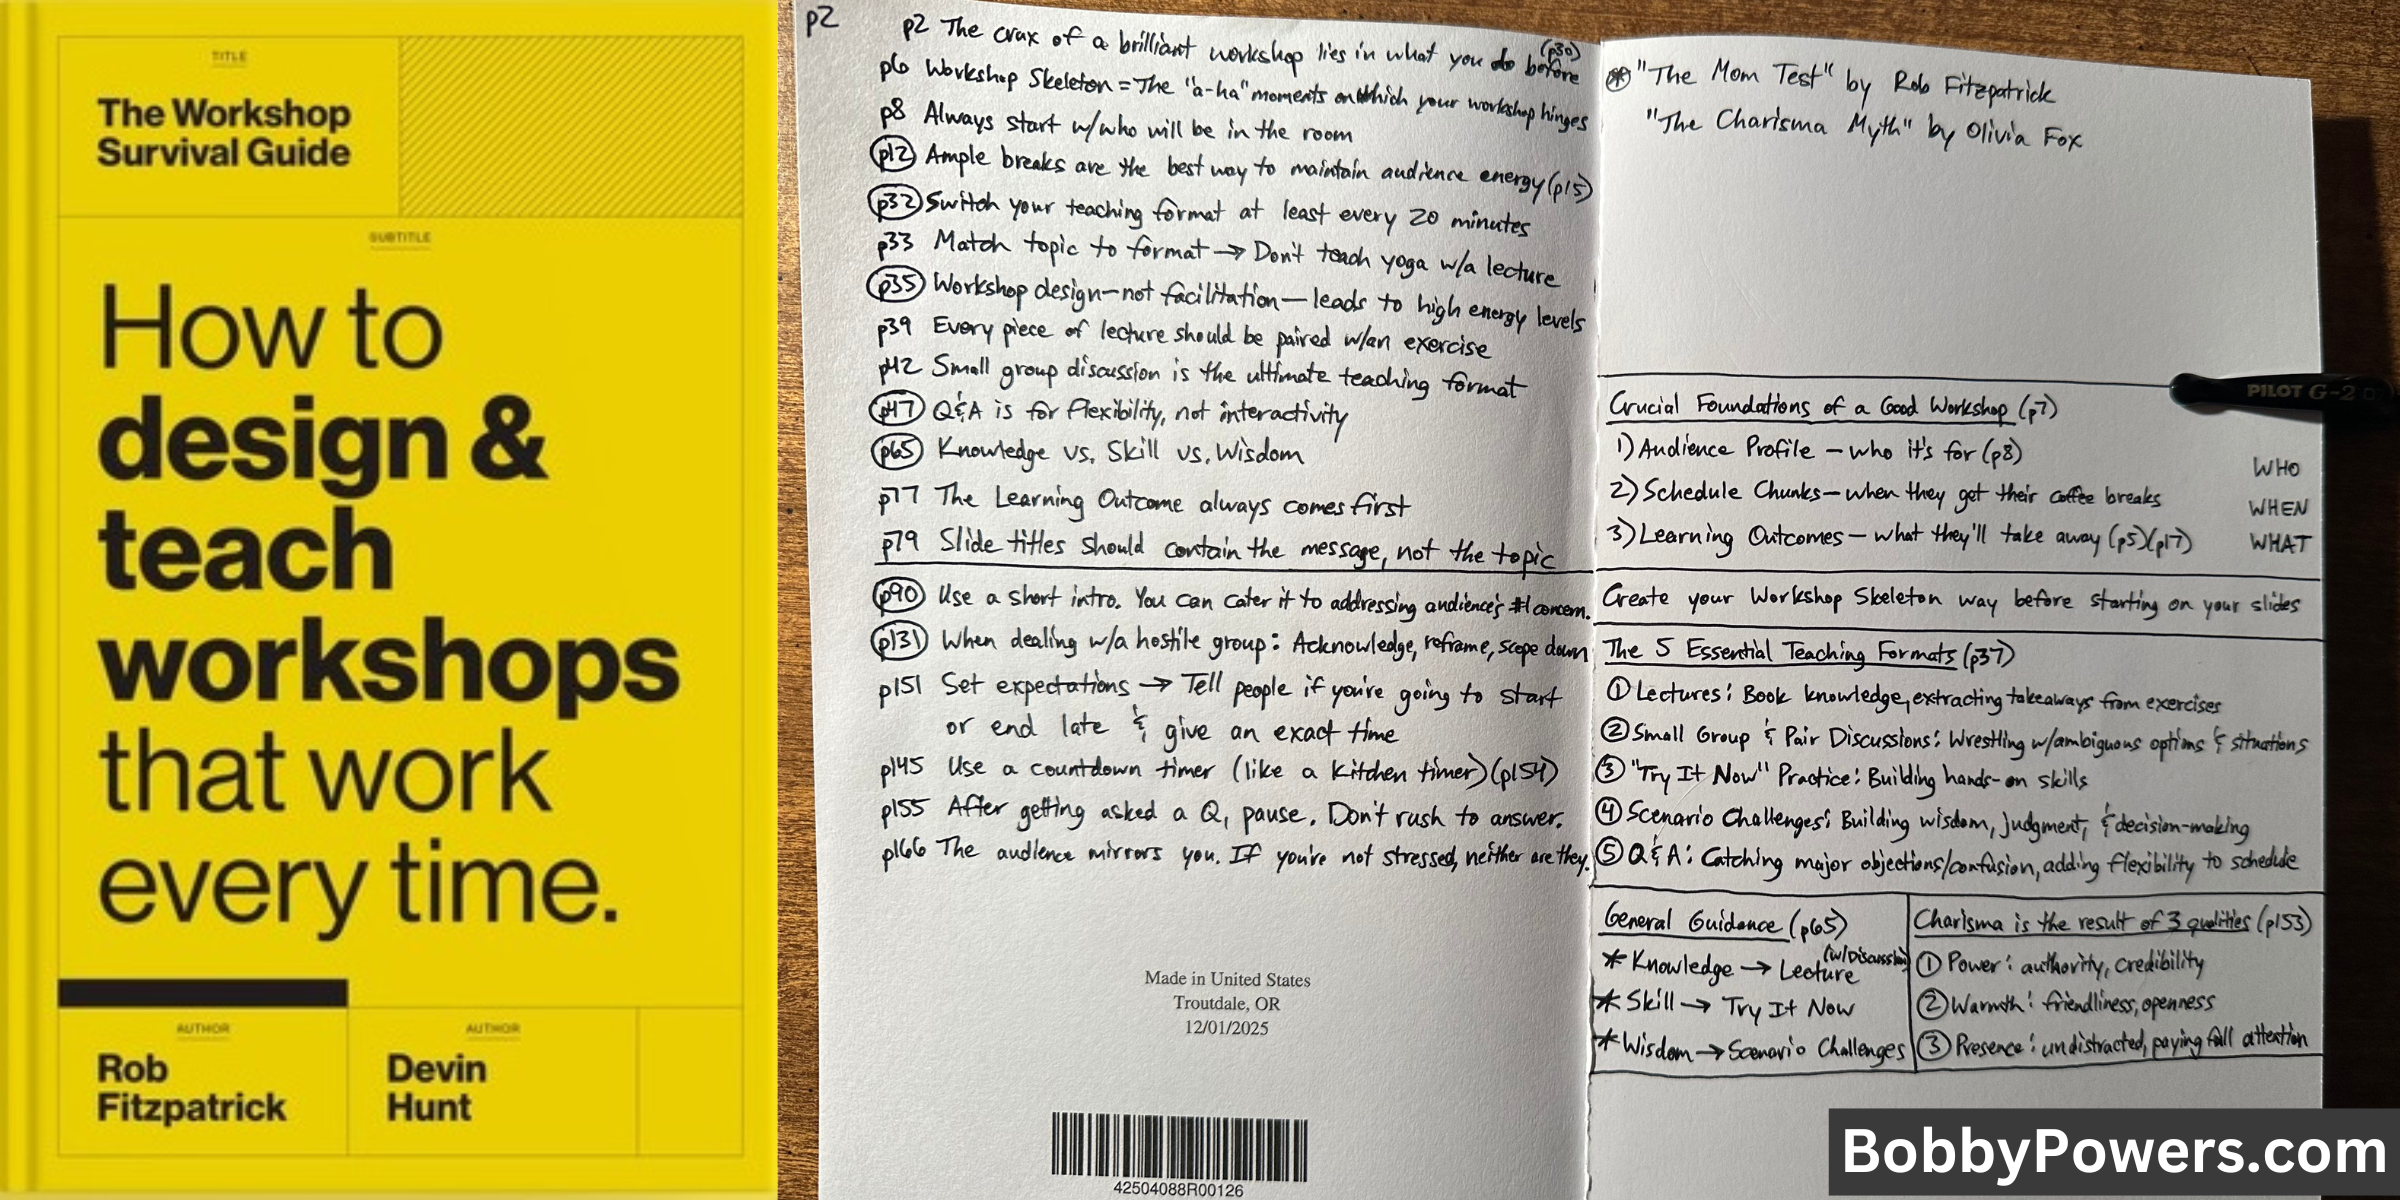 TITLE
The Workshop
Survival Guide
SUBTITLE
How to
design &
teach
workshops
that work
every time.
AUTHOR
Rob
Fitzpatrick
AUTHOR
Devin
Hunt
p2
p2 The crux of a brilliant workshop lies in what you do before (p30)
p6 Workshop Skeleton = The "a-ha" moments on which your workshop hinges
p8 Always start w/who will be in the room
p12 Ample breaks are the best way to maintain audience energy (p15)
p32 Switch your teaching format at least every 20 minutes
p33 Match topic to format → Don't teach yoga w/a lecture
p35 Workshop design—not facilitation—leads to high energy levels
p39 Every piece of lecture should be paired w/an exercise
p42 Small group discussion is the ultimate teaching format
p47 Q&A is for flexibility, not interactivity
p65 Knowledge vs. Skill vs. Wisdom
p77 The Learning Outcome always comes first
p79 Slide titles should contain the message, not the topic
p90 Use a short intro. You can cater it to addressing audience's #1 concern.
p131 When dealing w/a hostile group: Acknowledge, reframe, scope down
p151 Set expectations → Tell people if you're going to start
or end late & give an exact time
p145 Use a countdown timer (like a kitchen timer) (p154)
p155 After getting asked a Q, pause. Don't rush to answer.
p166 The audience mirrors you. If you're not stressed, neither are they.
Made in United States
Troutdale, OR
12/01/2025
42504088R00126
* "The Mom Test" by Rob Fitzpatrick
"The Charisma Myth" by Olivia Fox
PILOT G-2
Crucial Foundations of a Good Workshop (p7)
1) Audience Profile — who it's for (p8) WHO
2) Schedule Chunks — when they get their coffee breaks WHEN
3) Learning Outcomes — what they'll take away (p5)(p17) WHAT
Create your Workshop Skeleton way before starting on your slides
The 5 Essential Teaching Formats (p37)
① Lectures: Book knowledge, extracting takeaways from exercises
② Small Group & Pair Discussions: Wrestling w/ambiguous options & situations
③ "Try It Now" Practice: Building hands-on skills
④ Scenario Challenges: Building wisdom, judgment, & decision-making
⑤ Q&A: Catching major objections/confusion, adding flexibility to schedule
General Guidance (p65)
* Knowledge → Lecture (w/Discussion)
* Skill → Try It Now
* Wisdom → Scenario Challenges
Charisma is the result of 3 qualities (p153)
① Power: authority, credibility
② Warmth: friendliness, openness
③ Presence: undistracted, paying full attention
BobbyPowers.com